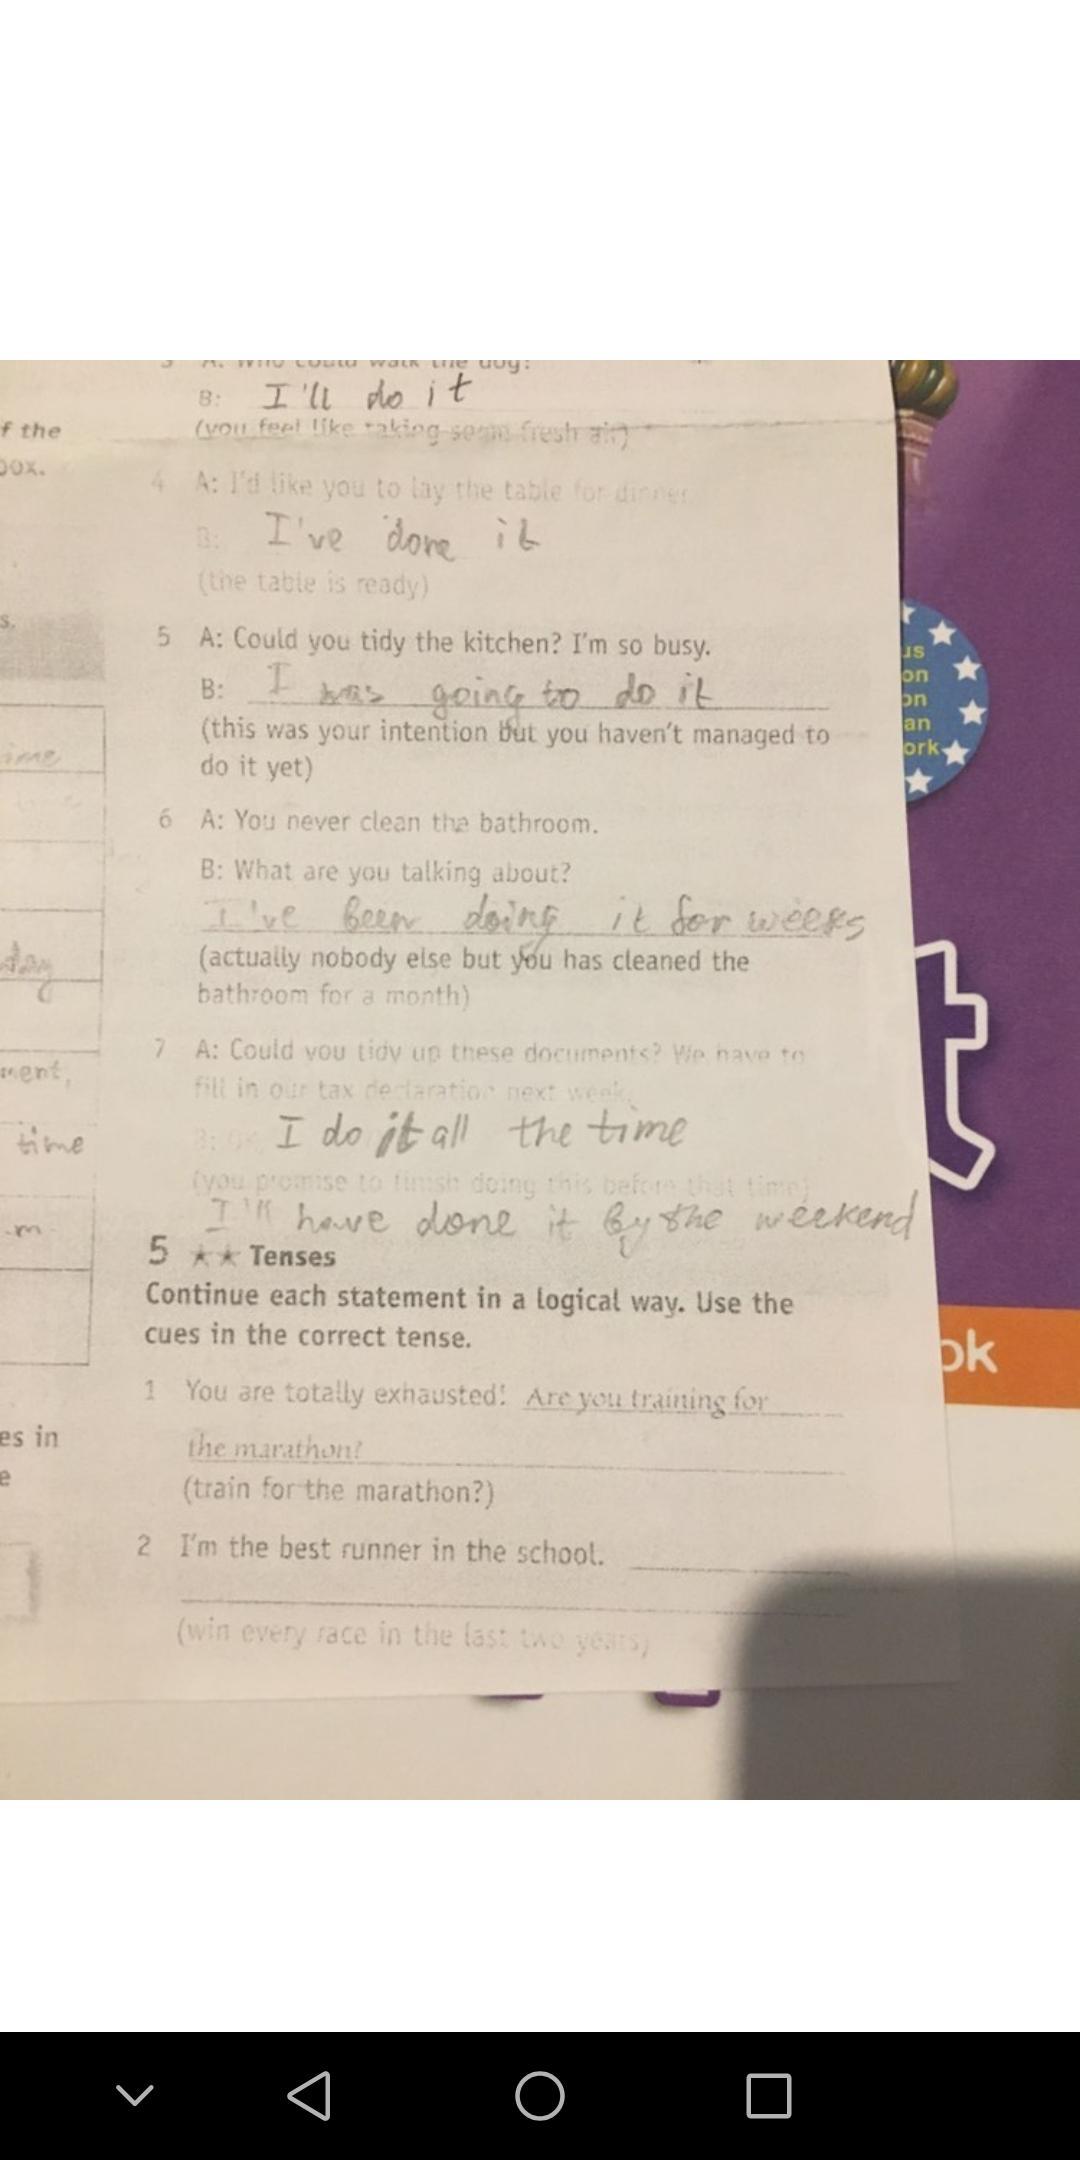 3 A: Who could walk the dog?
B: I'll do it
(you feel like taking some fresh air)
f the
box.
4 A: I'd like you to lay the table for dinner.
B: I've done it
(the table is ready)
s.
5 A: Could you tidy the kitchen? I'm so busy.
B: I was going to do it
(this was your intention but you haven't managed to
do it yet)
ime
6 A: You never clean the bathroom.
B: What are you talking about?
I've been doing it for weeks
(actually nobody else but you has cleaned the
bathroom for a month)
day
7 A: Could you tidy up these documents? We have to
fill in our tax declaration next week.
ment,
B: OK, I do it all the time
time
(you promise to finish doing this before that time)
I'll have done it by the weekend
.m
5 ★★ Tenses
Continue each statement in a logical way. Use the
cues in the correct tense.
1 You are totally exhausted! Are you training for
the marathon?
(train for the marathon?)
es in
e
2 I'm the best runner in the school.
(win every race in the last two years)
us
on
on
an
ork
t
ok